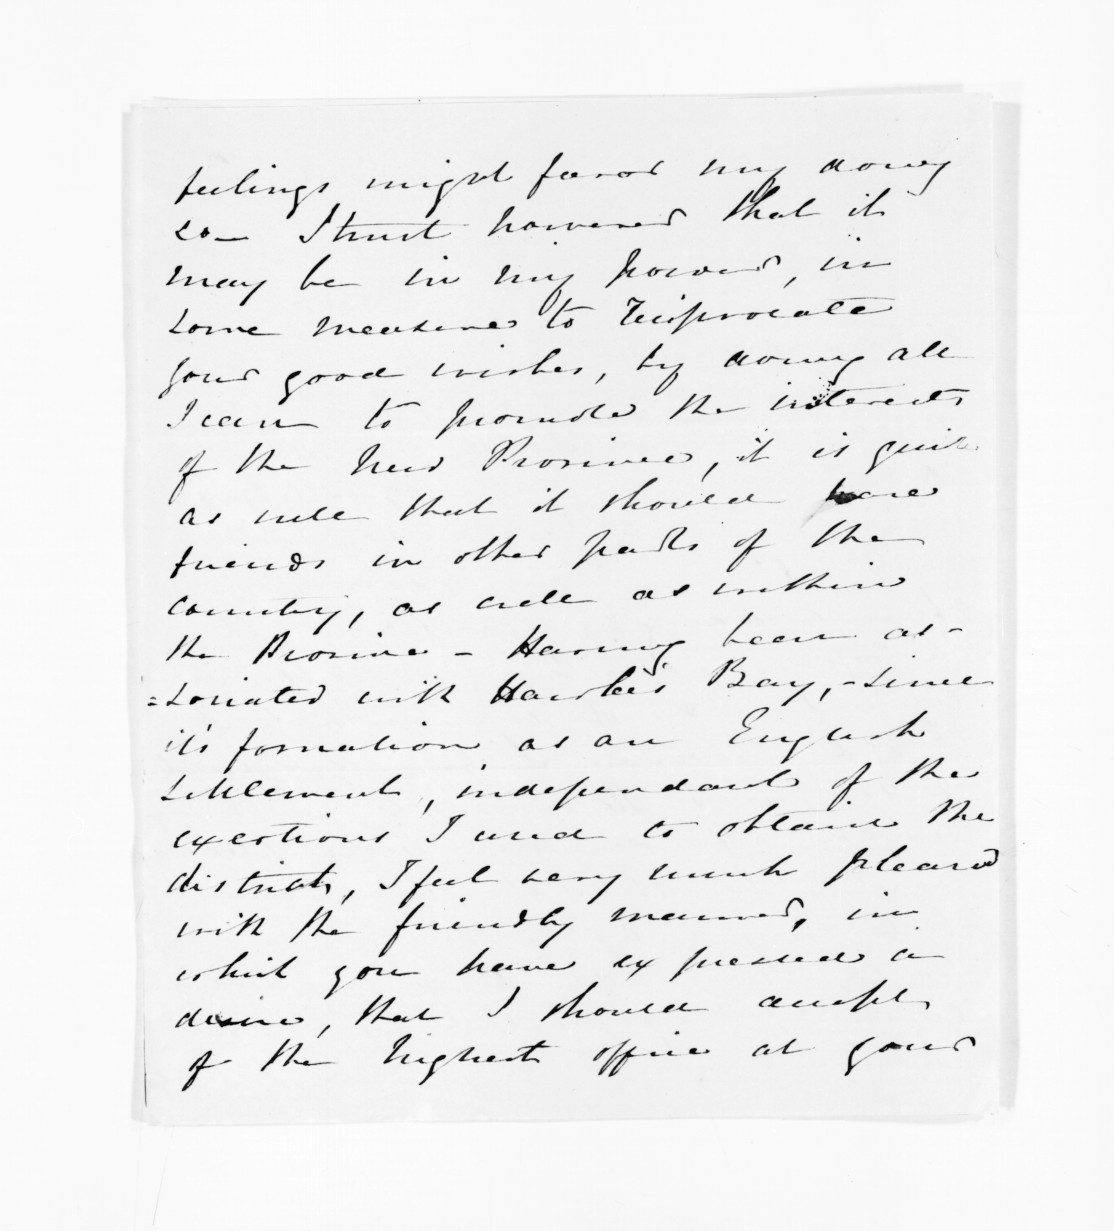 feelings might favor my doing
so_ I trust however that it
may be in my power, in
some measure to reciprocate
your good wishes, by doing all
I can to promote the interests
of the New Province, it is quite
as well that it should have
friends in other parts of the
country, as well as within
the Province - Having been as-
=sociated with Hawke's Bay, - since
it's formation as an English
settlement, independant of the
exertions I used to obtain the
district, I feel very much pleased
with the friendly manner, in
which you have expressed a
desire, that I should accept
of the highest office at your